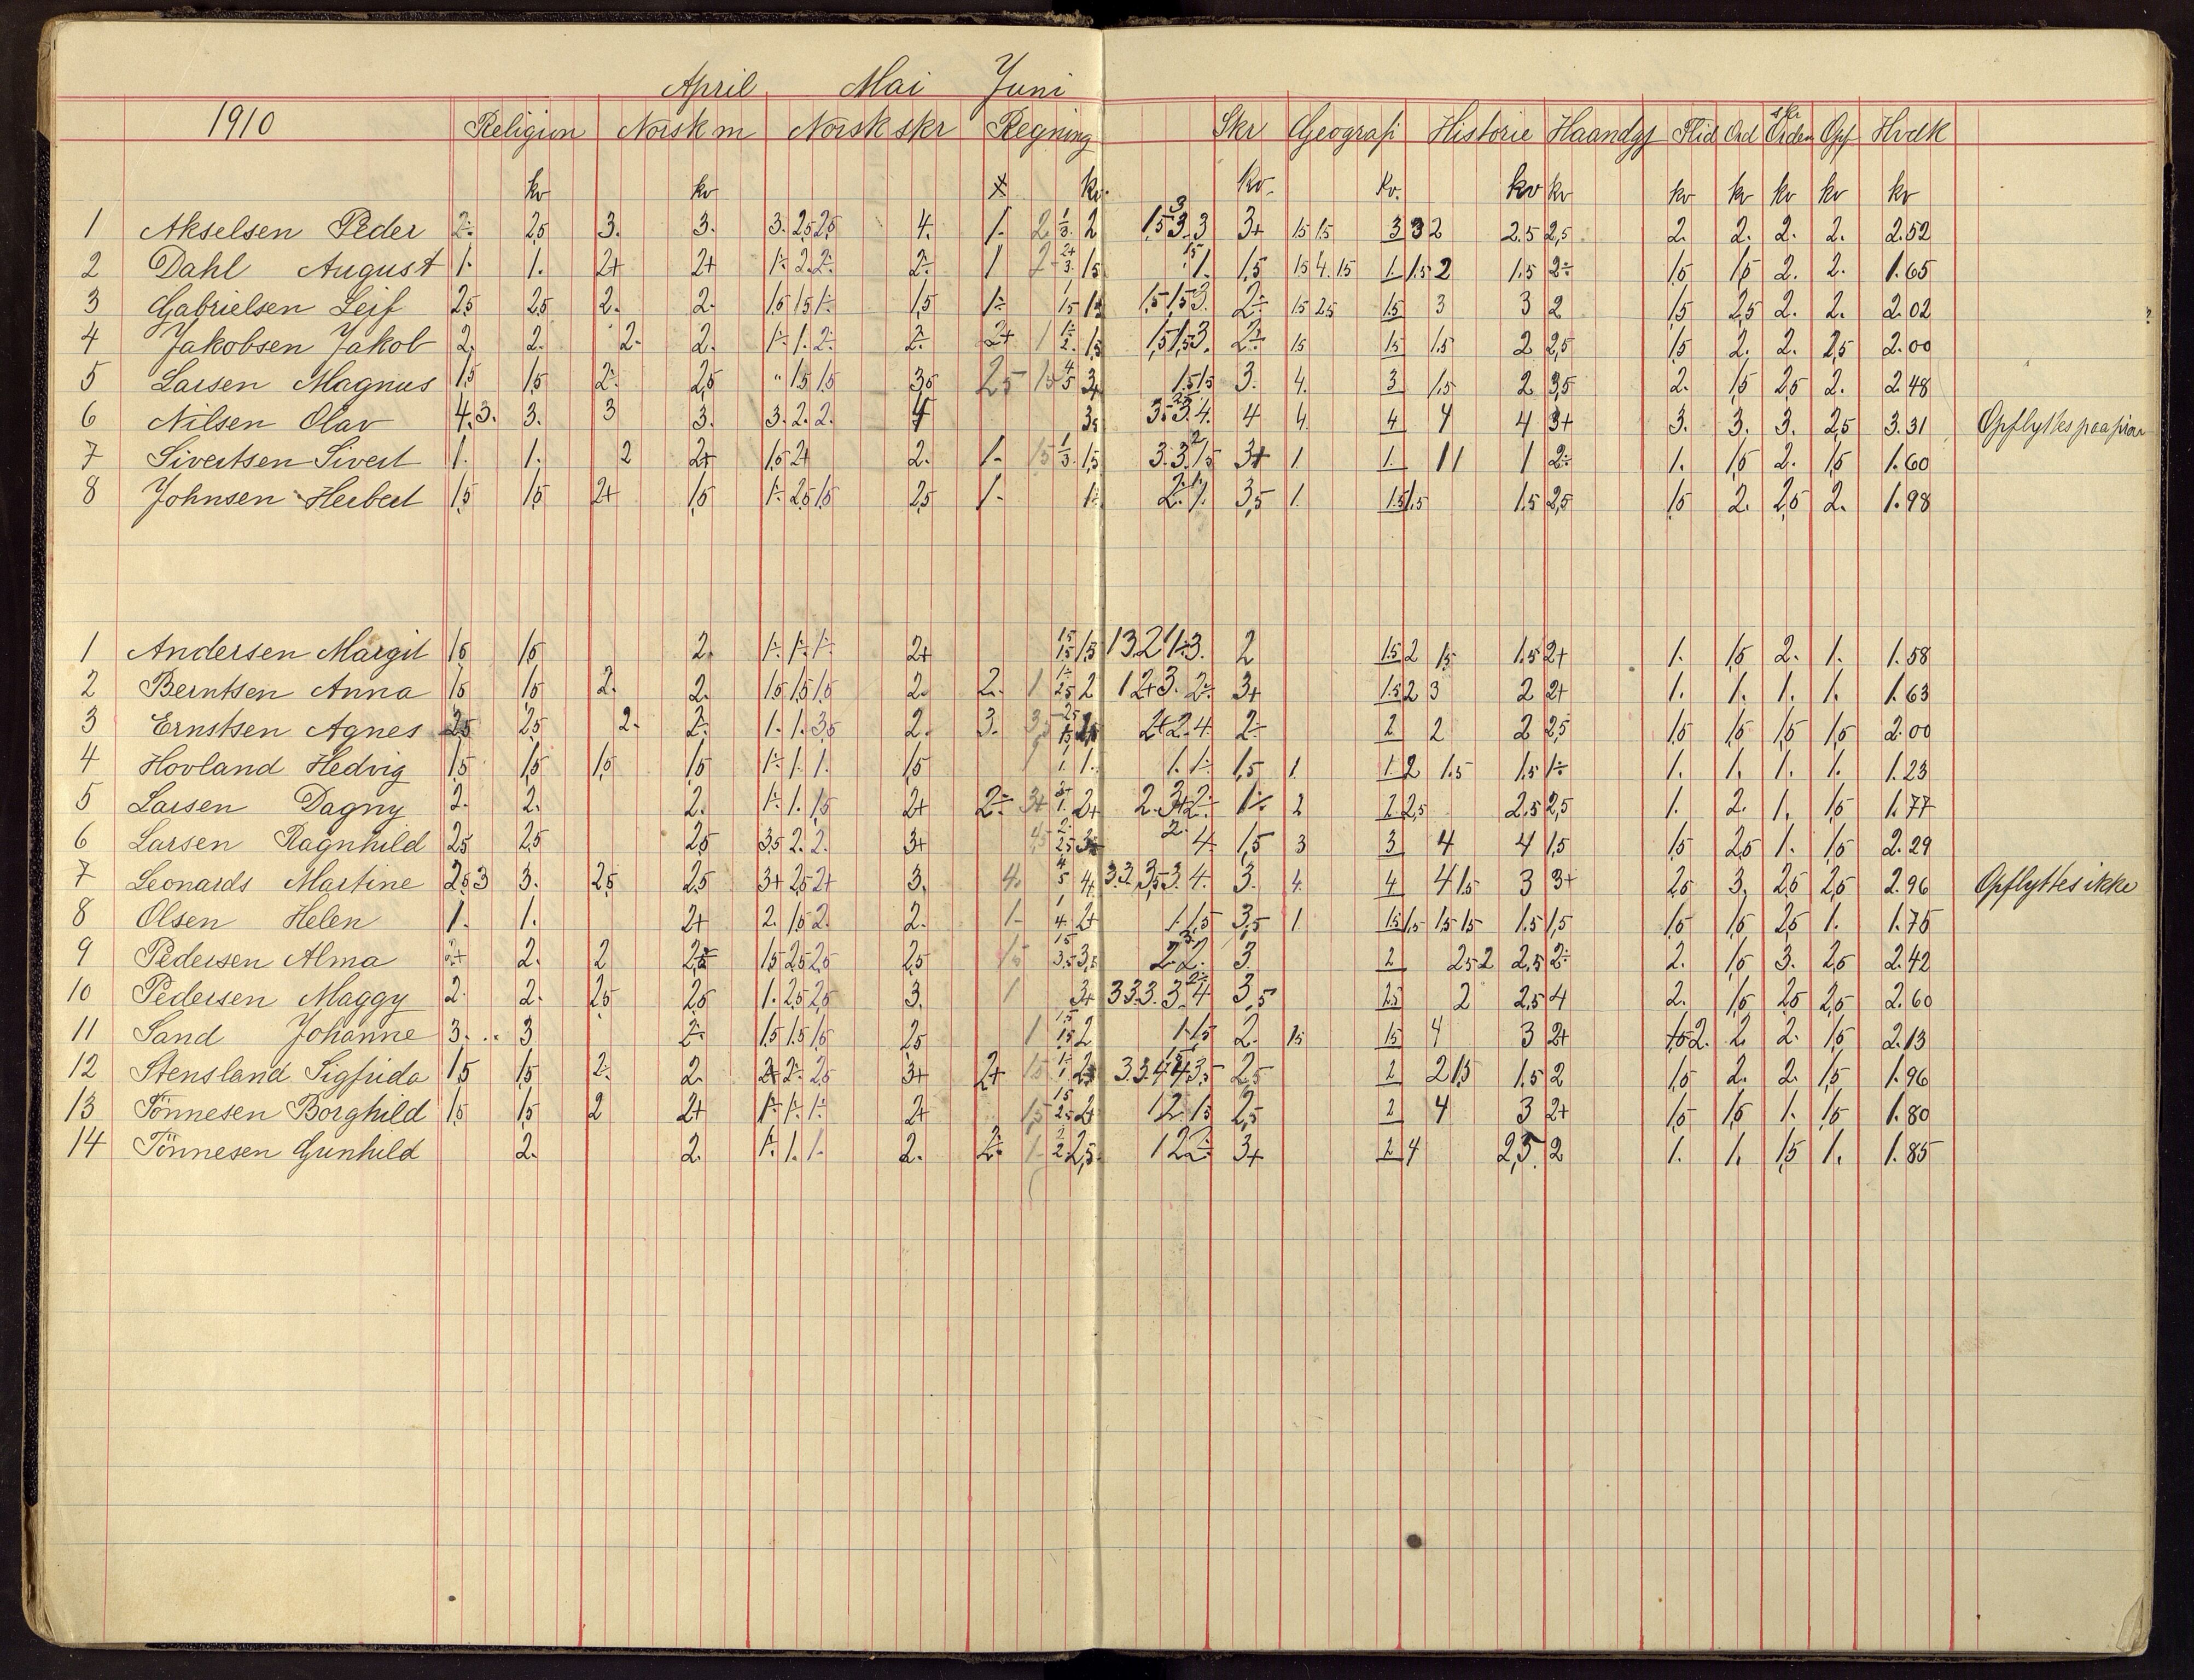 April Mai Juni
1910 Religion Norsk m Norsk skr Regning Skr Geografi Historie Haandgj Flid Ord skr Orden Opf Hvdk
kv kv kv. Kv. Kv. kv kv kv kv kv kv kv
1 Akselsen Peder 2÷ 2,5 3. 3. 3. 2,5 2,5 4. 1- 2. 1/3. 2 1,5 3 3. 3 3+ 1,5 1,5 3 3 2 2.5 2,5 2. 2. 2. 2. 2.52
2 Dahl August 1. 1. 2+ 2+ 1÷ 2. 2÷ 2÷ 1 2- 2+/3. 1,5 1,5 1. 1,5 1,5 4. 1,5 1. 1.5 2 1.5 2÷ 1,5 1,5 2. 2. 1.65
3 Gabrielsen Leif 2,5 2,5 2. 2. 1,5 1,5 1÷ 1,5 1÷ 1/1,5 1,5 1,5 3. 2÷ 1,5 2,5 1.5 3 3 2 1,5 2,5 2. 2. 2.02
4 Jakobsen Jakob 2. 2. 2. 2. 1÷ 1. 2÷ 2÷ 2+ 1 1÷/2. 1,5 1,5 1,5 3. 2÷ 1,5 1.5 1.5 2 2,5 1,5 2. 2. 2,5 2.00
5 Larsen Magnus 1,5 1,5 2÷ 2,5 " 1,5 1,5 3,5 2,5 1,5 4/5 3+ 1,5 1,5 3. 4. 3 1.5 2 3,5 2. 1,5 2,5 2. 2.48
6 Nilsen Olav 4. 3. 3. 3 3. 3. 2. 2. 4 3,5 3,5 2,5 3. 4. 4 4. 4 4 4 3+ 3. 3. 3. 2,5 3.31 Opflyttes paa prøve
7 Sivertsen Sivert 1. 1. 2 2+ 1,5 2+ 2. 1- 1,5 1/3. 1,5 3. 3. 2 1,5 3+ 1. 1. 1 1 1 2÷ 1. 1,5 2. 1,5 1.60
8 Johnsen Herbert 1,5 1,5 2+ 1,5 1÷ 2,5 1,5 2,5 1- 1÷ 2. 1. 3,5 1. 1.5 1.5 1.5 2,5 1,5 2. 2,5 2. 1.98
1 Andersen Margit 1,5 1,5 2. 1÷ 1÷ 1÷ 2+ 1,5/1,5 1,5 1 3. 2 1÷ 3. 2 1.5 2 1,5 1.5 2+ 1. 1,5 2. 1. 1.58
2 Berntsen Anna 1,5 1,5 2. 2. 1,5 1,5 1,5 2. 2. 1 1÷/2,5 2 1 2+ 3. 2÷ 3+ 1.5 2 3 2 2+ 1. 1. 1. 1. 1.63
3 Ernstsen Agnes 2,5 2,5 2. 2÷ 1. 1. 3,5 2. 3. 3,5 2,5/1,5 2,5 2+ 2. 4 2÷ 2 2 2 2,5 1,5 1,5 1,5 1,5 2.00
4 Hovland Hedvig 1,5 1,5 1,5 1,5 1÷ 1. 1. 1,5 1 1/1. 1. 1. 1÷ 1,5 1. 1. 2 1.5 1.5 1÷ 1. 1. 1. 1. 1.23
5 Larsen Dagny 2. 2. 2. 1÷ 1. 1,5 2+ 2÷ 3+ 3/1. 2+ 2. 3+ 2÷ 1÷ 2 2 2,5 2.5 2,5 1. 2. 1. 1,5 1.77
6 Larsen Ragnhild 2,5 2,5 2,5 3,5 2. 2. 3+ 4,5 2/2,5 3÷ 2. 4 1,5 3 3 4 4 1,5 1,5 2,5 1. 1,5 2.29
7 Leonards Martine 2,5 3 3. 2,5 2,5 3+ 2,5 2+ 3. 4. 4/5 4+ 3. 3. 3,5 3. 4. 3. 4. 4 4 1,5 3 3+ 2,5 3. 2,5 2,5 2.96 Opflyttes ikke
8 Olsen Helen 1. 1. 2+ 2. 1,5 2. 2. 1- 1/4. 2+ 1. 1,5 3,5 1. 1.5 1.5 1.5 1.5 1.5 1,5 1,5 1,5 2,5 1. 1.75
9 Pedersen Alma 2+ 2. 2 2,5 1,5 2,5 2,5 2,5 1,5 1,5/3,5 3,5 2. 3 2. 3. 2 2,5 2 2,5 2÷ 2. 1,5 3. 2,5 2.42
10 Pedersen Maggy 2. 2. 2,5 2,5 1. 2,5 2,5 3. 1 3+ 3 3. 3. 3. 2÷ 4 3,5 2.5 2 2,5 4 2. 1,5 2,5 2,5 2.60
11 Sand Johanne 3. .. 3 2÷ 1,5 1,5 1,5 2,5 1 1,5/1,5 2 1 1,5 2. 1,5 1.5 4 3 2+ 1,5 2. 2. 2. 1,5 2.13
12 Stensland Sigfrida 1,5 1,5 2÷ 2. 2+ 2÷ 2,5 3+ 2+ 1,5 1÷/1. 2,5 3. 3. 4 1,5 4 3,5 2,5 2 2 1,5 1.5 2 1,5 2. 2. 1,5 1.96
13 Tönnesen Borghild 1,5 1,5 2 2+ 1÷ 1÷ 1÷ 2+ 1,5 1,5/2,5 2+ 1 2. 1,5 2,5 2 4 3 2+ 1,5 1,5 1. 1,5 1.80
14 Tönnesen Gunhild 2. 2. 1÷ 1. 1. 2. 2÷ 1- 2/2. 2,5 1 2 2÷ 3+ 2 4 2,5 2 1. 1. 1,5 1. 1.85